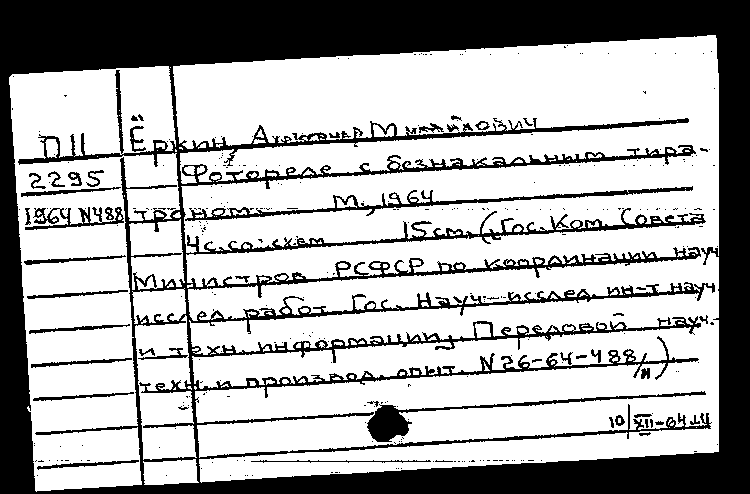 П11 Ёркин, Александр Михайлович
2295 Фотореле с безнакальным тира-
1964 N488 троном. – М., 1964
4 с. со схем 15 см. (Гос. Ком. Совета
Министров РСФСР по координации науч
исслед. работ Гос. Науч–исслед. ин-т науч.
и техн. информации, Передовой науч.-
техн. и производ. опыт. N 26-64-488/
). 
10 XII-64